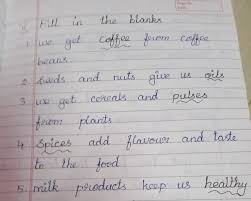 Fill in the blanks
1 we get coffee from coffee
beans
2 seeds and nuts give us oils
3 we get cereals and pulses
from plants
4 Spices add flavour and taste
to the food
5. milk products keep us healthy